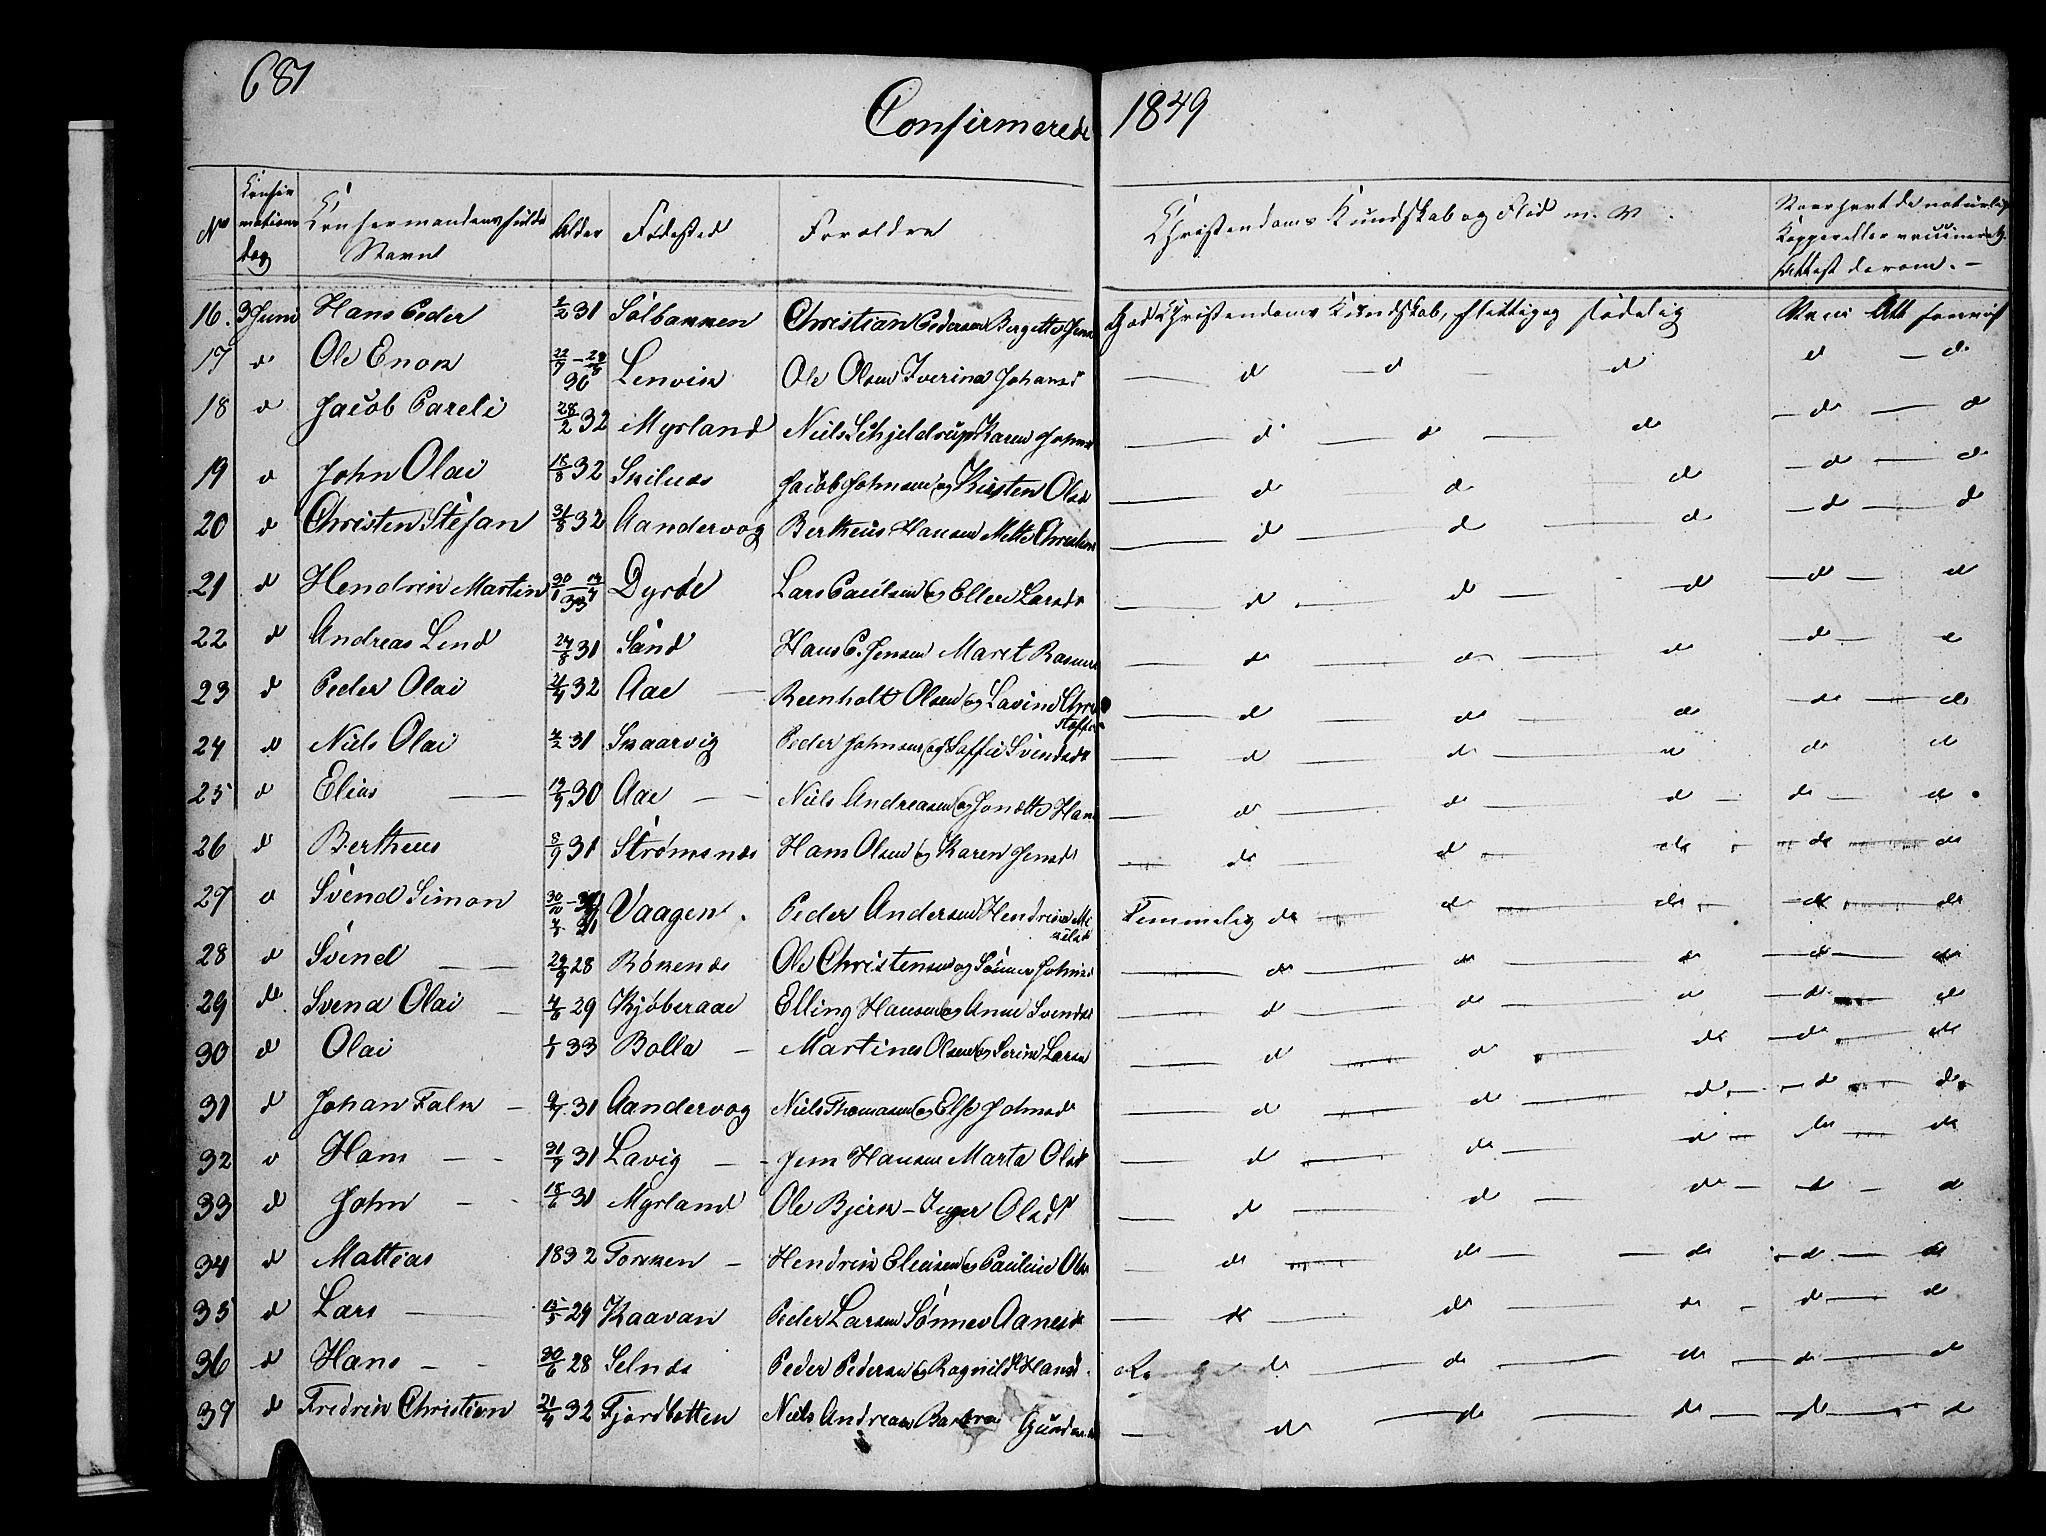 681
Confirmerede 1849
No Confirmations dag Confirmandens fulde Navn Alder Fødested Forældre Christendoms Kundskab og Flid m. V.
16. 3 Juni Hans Peder 1/2 31 Solbakken Christian Pedersen Bergette Jens God Christendoms Kundskab, flittig og sædelig Vacc Att
17 d Ole Enok 30 Lenvik Ole Olsen Iverina Johansd d d d d d
18 d Jacob Pareli 28/2 32 Myrland Niels Schjeldrup Karen d d d d d
19 d John Olai 18/8 32 Skilnæs Jacob Johnsen og Kirsten Olsd d d d d d
20 d Christen Stefan 31/8 32 Aandervog Bertheus Hansen Mette d d d d d
21 d Hendrik Martin 33 Dyröe Lars Paulsen og Ellen Larsd d d d d d
22 d Andreas Lend 24/8 31 Sand Hans P. Jensen Maret Rasmus d d d d d
23 d Peder Olai 21/4 32 Aae Reenholt Olsen og Lavine Chri
stoffer d d d d d
24 d Niels Olai 4/2 31 Skaarvig Peder Johnsen og Soffie Svendsd d d d d d
25 d Elias 19/9 30 Aae Niels Andreasen og Jonette Hans d d d d d
26 d Bertheus 8/9 31 Strømsnæs Hans Olsen og Karen Jensd d d d d d
27 d Svend Simon 31 Vaagen Peder Andersen Hendrikka Temmelig do d d d d
28 d Svend 29/9 28 Röknæs Ole Christensen og Sönnev Johnsd d d d d d
29 d Svend Olai 4/8 29 Kjøberaae Elling Hansen og Anne Svendsd d d d d d
30 d Olai 1/1 33 Bolla Martines Olsen og Serine Larsd d d d d d
31 d Johan Falk 9/7 31 Aandervog Niels Thomasen og Else Johnsd d d d d d
32 d Hans 31/7 31 Lavig Jens Hansen Marta Olsd d d d d d
33 d John 18/6 31 Myrland Ole Bjerk Inger Olsdt d d d d d
34 d Mattias 1832 Torsken Hendrik Eliasen og Pauline Ols d d d d d
35 d Lars 15/5 29 Kaavan Peder Larsen Sönnev Aanesd d d d d d
36 d Hans 30/6 28 Selnæs Peder Pedersen og Ragnild Hansd d d d d d
37 d Fredrik Christian 21/4 32 Fjordbotten Niels Andreas Barbra d d d d d